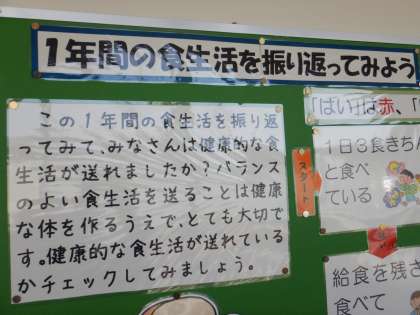 1年間の食生活を振り返ってみよう
この1年間の食生活を振り返
ってみて、みなさんは健康的な食
生活が送れましたか？バランス
のよい食生活を送ることは健康
な体を作るうえで、とても大切で
す。健康的な食生活が送れている
かチェックしてみましょう。
「はい」は赤、「
スタート
1日3食きちん
と食べ
ている
給食を残さ
食べて